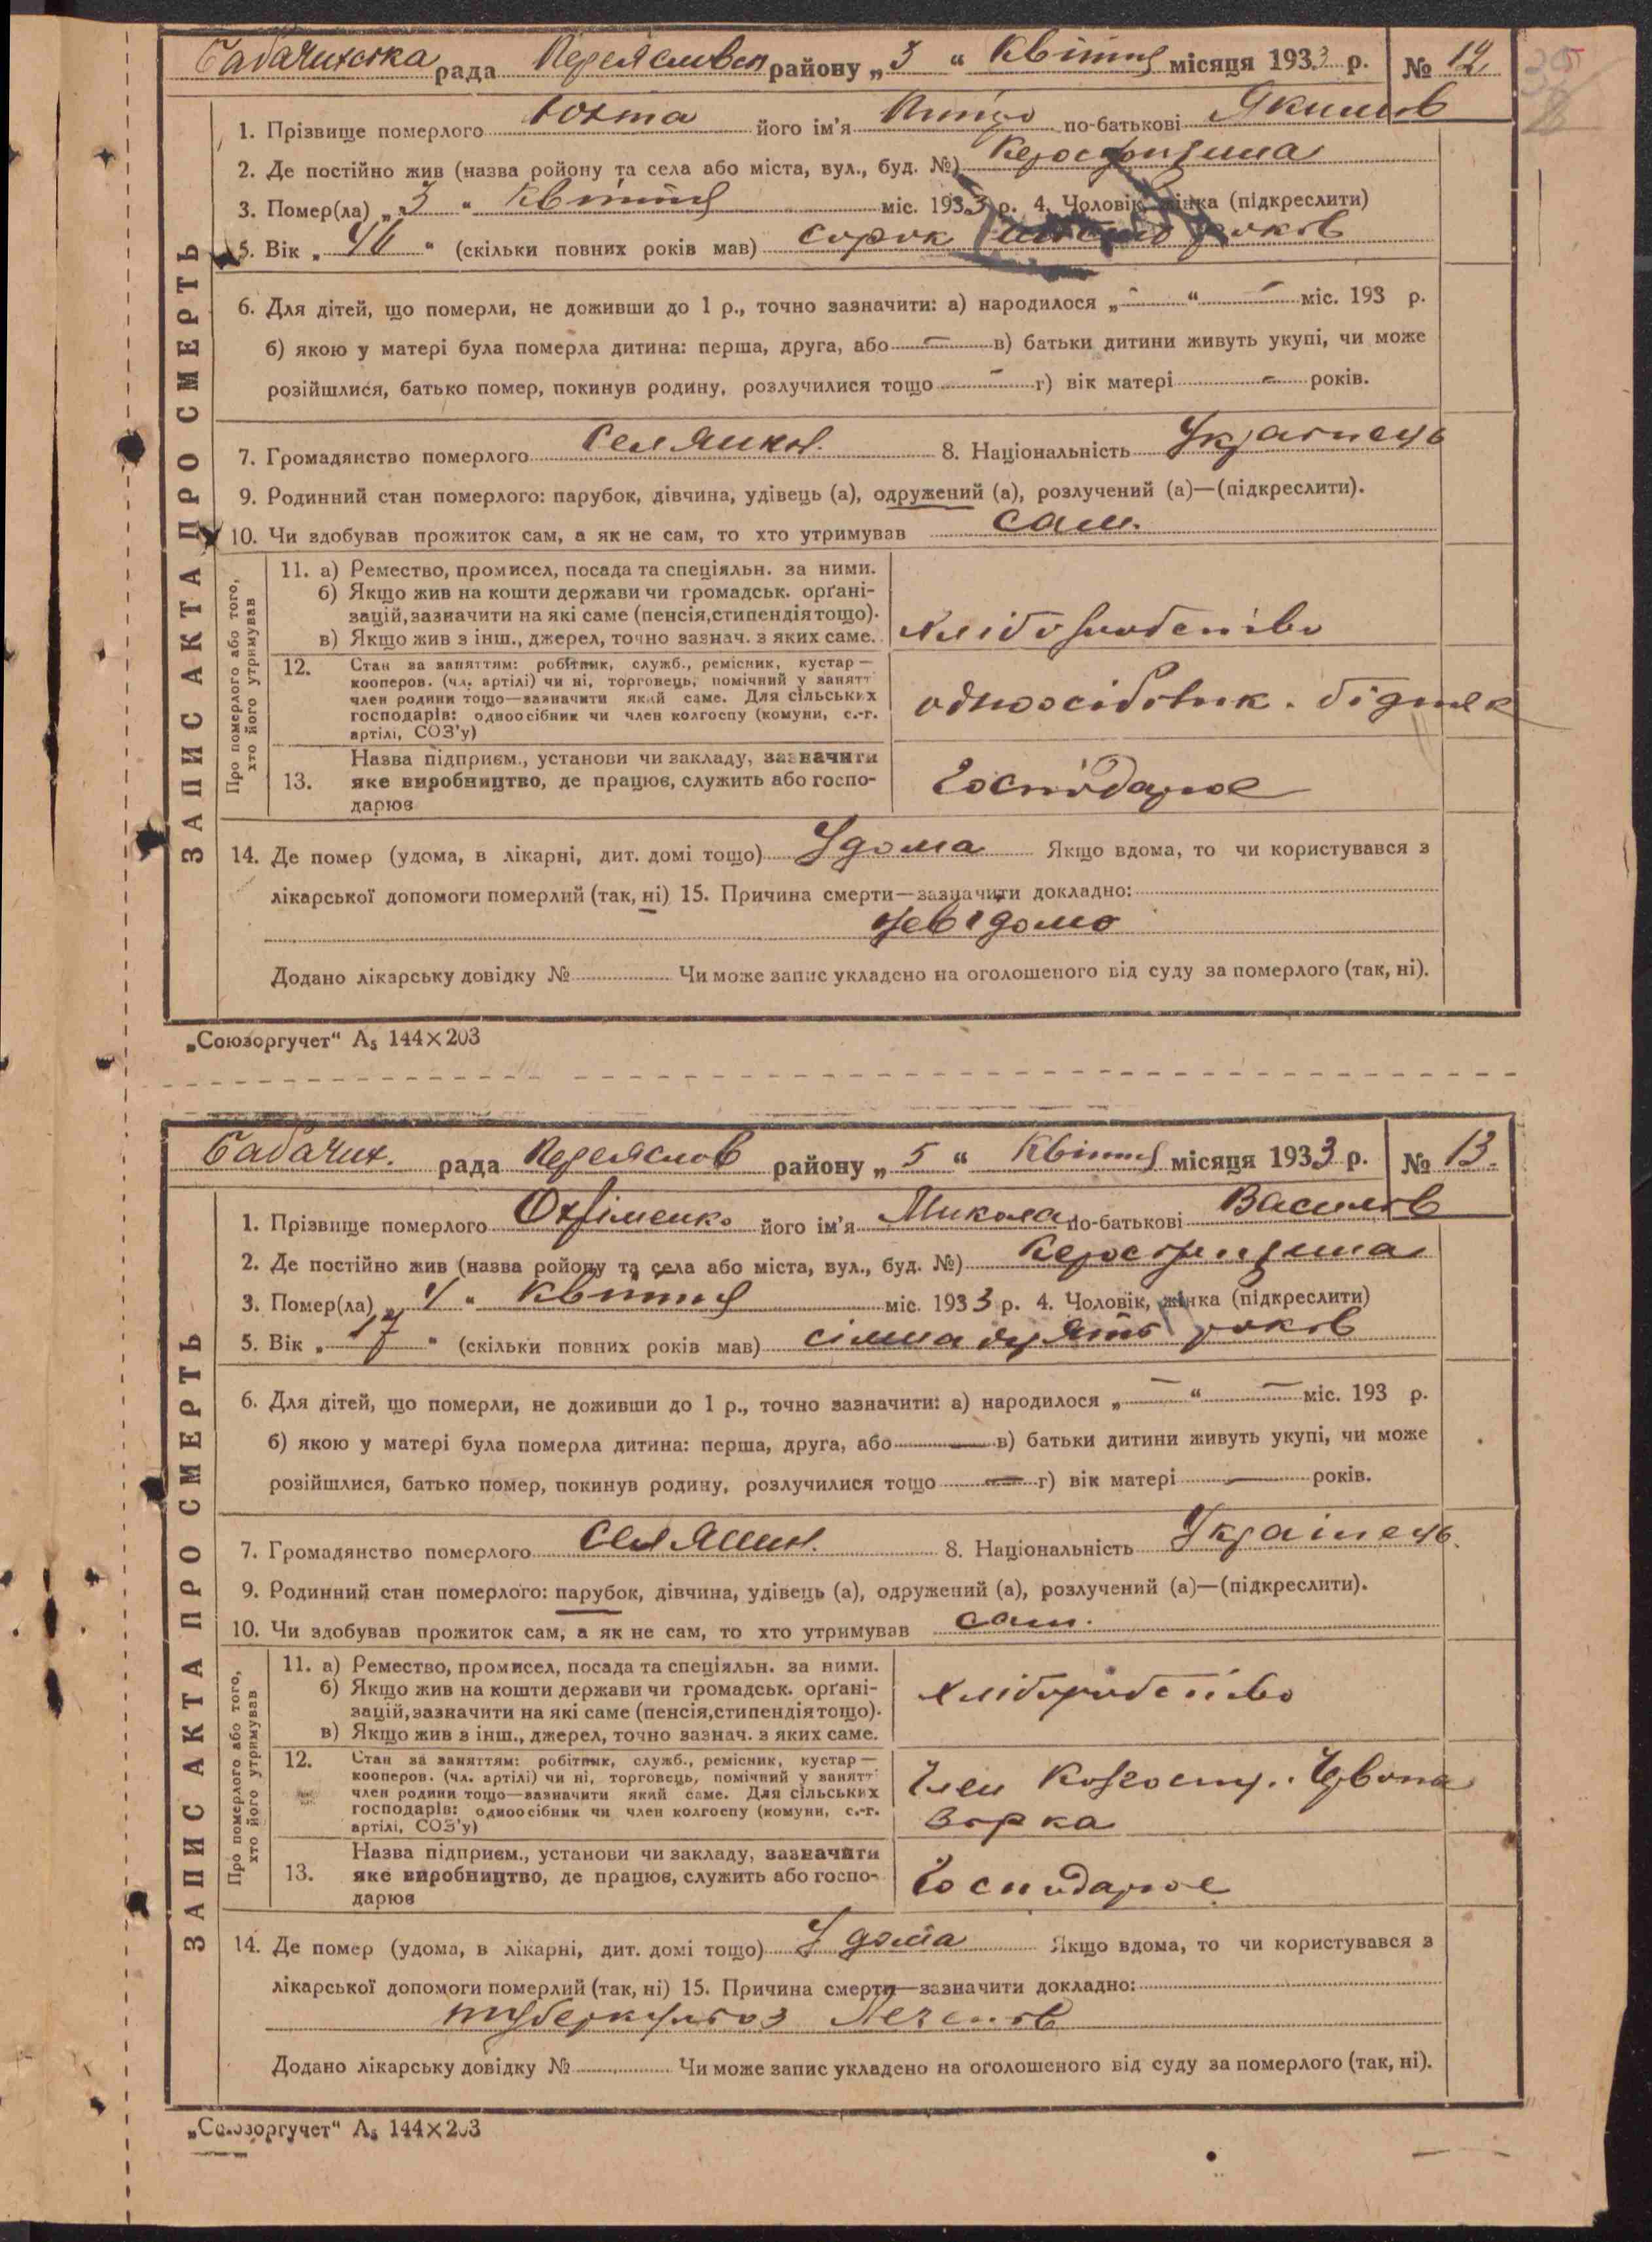 рада Переяславськ району „3“ Квітня місяця 1933 р. № 12
1. Прізвище померлого Юхта його ім'я по-батькові Якимов
2. Де постійно жив (назва ройону та села або міста, вул., буд. №)
3. Помер(ла) „3“ Квітня міс. 1933 р. 4. Чоловік, жінка (підкреслити)
5. Вік „46“ (скільки повних років мав) сорок шість років
6. Для дітей, що померли, не доживши до 1 р., точно зазначити: а) народилося „–“ – міс. 193 р.
б) якою у матері була померла дитина: перша, друга, або – в) батьки дитини живуть укупі, чи може
розійшлися, батько помер, покинув родину, розлучилися тощо – г) вік матері – років.
7. Громадянство померлого Селянин. 8. Національність Українець
9. Родинний стан померлого: парубок, дівчина, удівець (а), одружений (а), розлучений (а)—(підкреслити).
10. Чи здобував прожиток сам, а як не сам, то хто утримував сам.
ЗАПИС АКТА ПРО СМЕРТЬ
Про померлого або того,
хто його утримував
11. а) Ремество, промисел, посада та спеціяльн. за ними.
б) Якщо жив на кошти держави чи громадськ. орґані-
зацій, зазначити на які саме (пенсія, стипендія тощо).
в) Якщо жив з інш., джерел, точно зазнач. з яких саме.
хліборобство
12. Стан за заняттям: робітник, служб., ремісник, кустар —
кооперов. (чл. артілі) чи ні, торговець, помічний у занятт
член родини тощо—зазначити який саме. Для сільських
господарів: одноосібник чи член колгоспу (комуни, с.-г.
артілі, СОЗ'у)
одноосібник. бідняк
Назва підприєм., установи чи закладу, зазначити
13. яке виробництво, де працює, служить або госпо-
дарює
Господарює
14. Де помер (удома, в лікарні, дит. домі тощо) Удома Якщо вдома, то чи користувався з
лікарської допомоги померлий (так, ні) 15. Причина смерти—зазначити докладно:
невідомо
Додано лікарську довідку № Чи може запис укладено на оголошеного від суду за померлого (так, ні).
„Союзоргучет“ А₅ 144×203
Бабачих. рада Переяслов району „5“ Квітня місяця 1933 р. № 13.
1. Прізвище померлого Охріменко його ім'я Микола по-батькові Васильов
2. Де постійно жив (назва ройону та села або міста, вул., буд. №)
3. Помер(ла) „4“ Квітня міс. 1933 р. 4. Чоловік, жінка (підкреслити)
5. Вік „17“ (скільки повних років мав) сімнадцять років
6. Для дітей, що померли, не доживши до 1 р., точно зазначити: а) народилося „–“ – міс. 193 р.
б) якою у матері була померла дитина: перша, друга, або – в) батьки дитини живуть укупі, чи може
розійшлися, батько помер, покинув родину, розлучилися тощо – г) вік матері – років.
7. Громадянство померлого Селянин. 8. Національність Українець.
9. Родинний стан померлого: парубок, дівчина, удівець (а), одружений (а), розлучений (а)—(підкреслити).
10. Чи здобував прожиток сам, а як не сам, то хто утримував сам.
ЗАПИС АКТА ПРО СМЕРТЬ
Про померлого або того,
хто його утримував
11. а) Ремество, промисел, посада та спеціяльн. за ними.
б) Якщо жив на кошти держави чи громадськ. орґані-
зацій, зазначити на які саме (пенсія, стипендія тощо).
в) Якщо жив з інш., джерел, точно зазнач. з яких саме.
хліборобство
12. Стан за заняттям: робітник, служб., ремісник, кустар —
кооперов. (чл. артілі) чи ні, торговець, помічний у занятт
член родини тощо—зазначити який саме. Для сільських
господарів: одноосібник чи член колгоспу (комуни, с.-г.
артілі, СОЗ'у)
Член Колгоспу. Червона
Зорка
Назва підприєм., установи чи закладу, зазначити
13. яке виробництво, де працює, служить або госпо-
дарює
Господарює
14. Де помер (удома, в лікарні, дит. домі тощо) Удома Якщо вдома, то чи користувався з
лікарської допомоги померлий (так, ні) 15. Причина смерти—зазначити докладно:
туберкульоз Легенів
Додано лікарську довідку № Чи може запис укладено на оголошеного від суду за померлого (так, ні).
„Союзоргучет“ А₅ 144×203